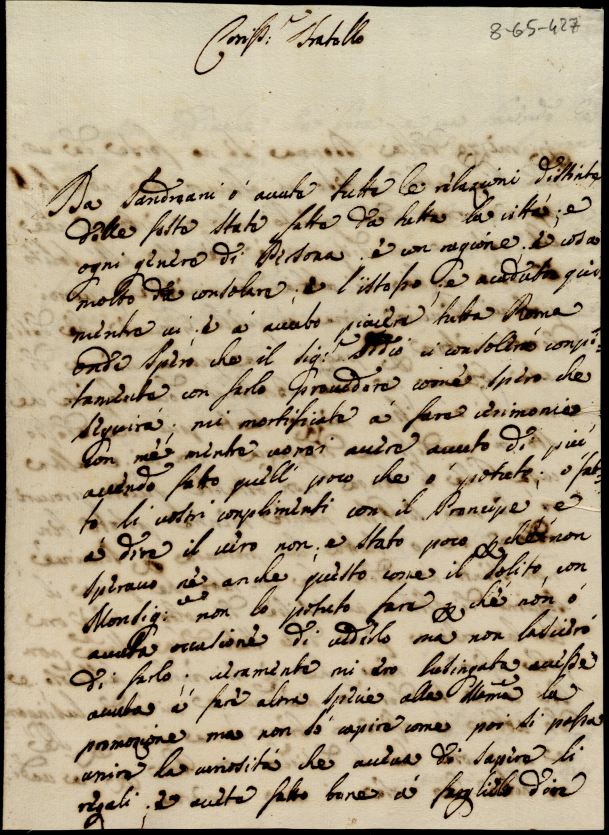 8-65-427
Cariss:mo Fratello
Da Sandreani ó avute tutte le relazioni distinte
delle feste state fatte da tutta la città, e
ogni genere di Persona, é con ragione, é cosa
molto da consolare, é l'istesso é acaduta qui
mentre ci é á auto piacere tutta Roma
onde spero che il Sig:re Idio ci consolerá compi-
tamente con farlo provedere come spero che
seguirá, mi mortificate á fare cerimonie
con mé mentre vorrei avere avuto di piú
avendo fatto quell poco che ó potuto, ó fat-
to li vostri complimenti con il Prencipe, e
á dire il vero non, e stato poco perché non
speravo né anche questo come il solito, con
Monsig:re non lo potuto fare perché non ó
avuta occasione di vederlo ma non lascieró
di farlo, veramente mi ero lusingata avesse
avuta á fare altra specie alla
la
promozione ma non só capire come poi si possa
unire la curiositá che aveva di sapere li
regali, é avete fatto bene á farglielo dire